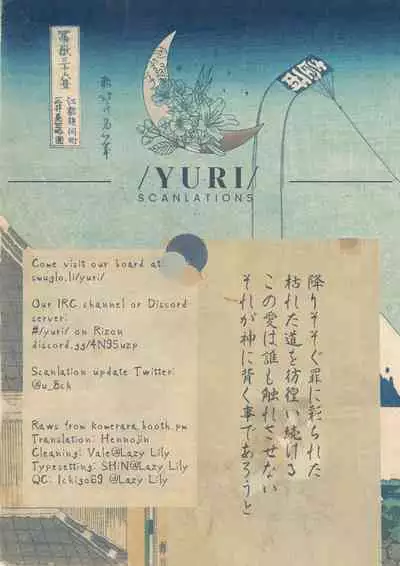 /YURI/
SCANLATIONS
Come visit our board at
smuglo.li/yuri/
Our IRC channel or Discord
server:
#/yuri/ on Rizon
discord.gg/4N95uzp
Scanlation update Twitter:
@u_8ch
Raws from kowerara.booth.pm
Translation: Hennojin
Cleaning: Vale@Lazy Lily
Typesetting: SHiN@Lazy Lily
QC: Ichigo69 @Lazy Lily
降りそそぐ罪に彩られた
枯れた道を彷徨い続ける
この愛は誰も触れさせない
それが神に背く事であろうと